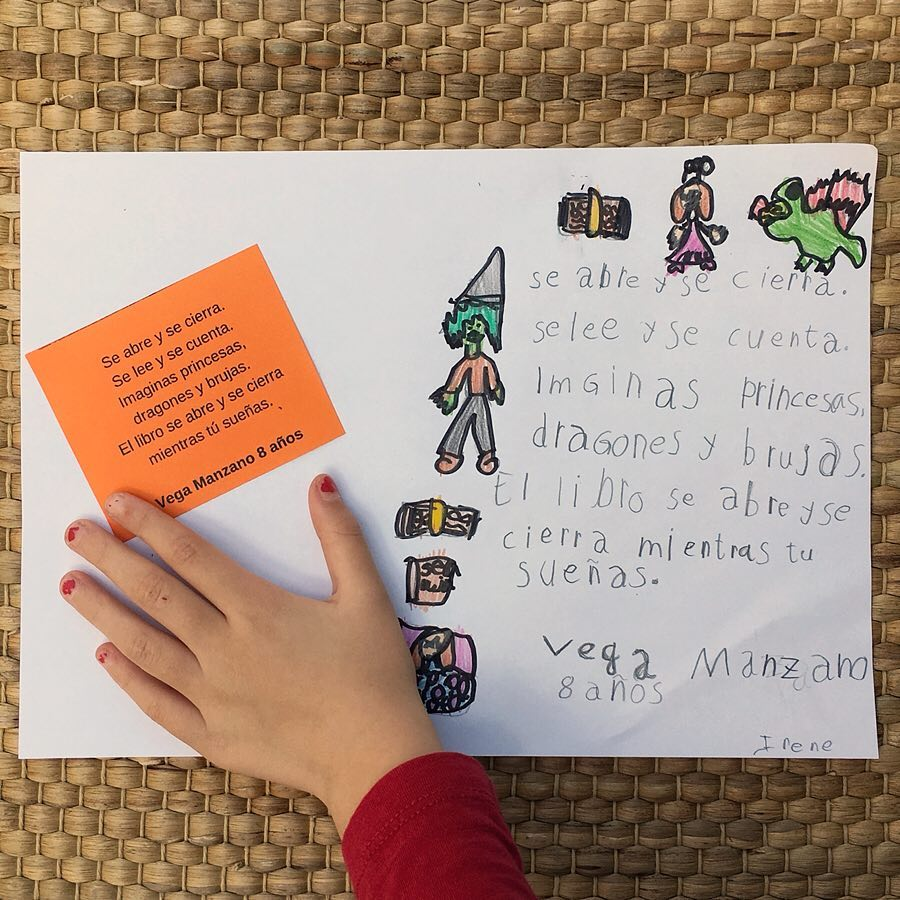 Se abre y se cierra.
Se lee y se cuenta.
Imaginas princesas,
dragones y brujas.
El libro se abre y se cierra
mientras tú sueñas.
Vega Manzano 8 años
se abre y se cierra.
se lee y se cuenta.
Imginas princesas,
dragones y brujas.
El libro se abre y se
cierra mientras tu
sueñas.
Vega Manzano
8 años
Irene